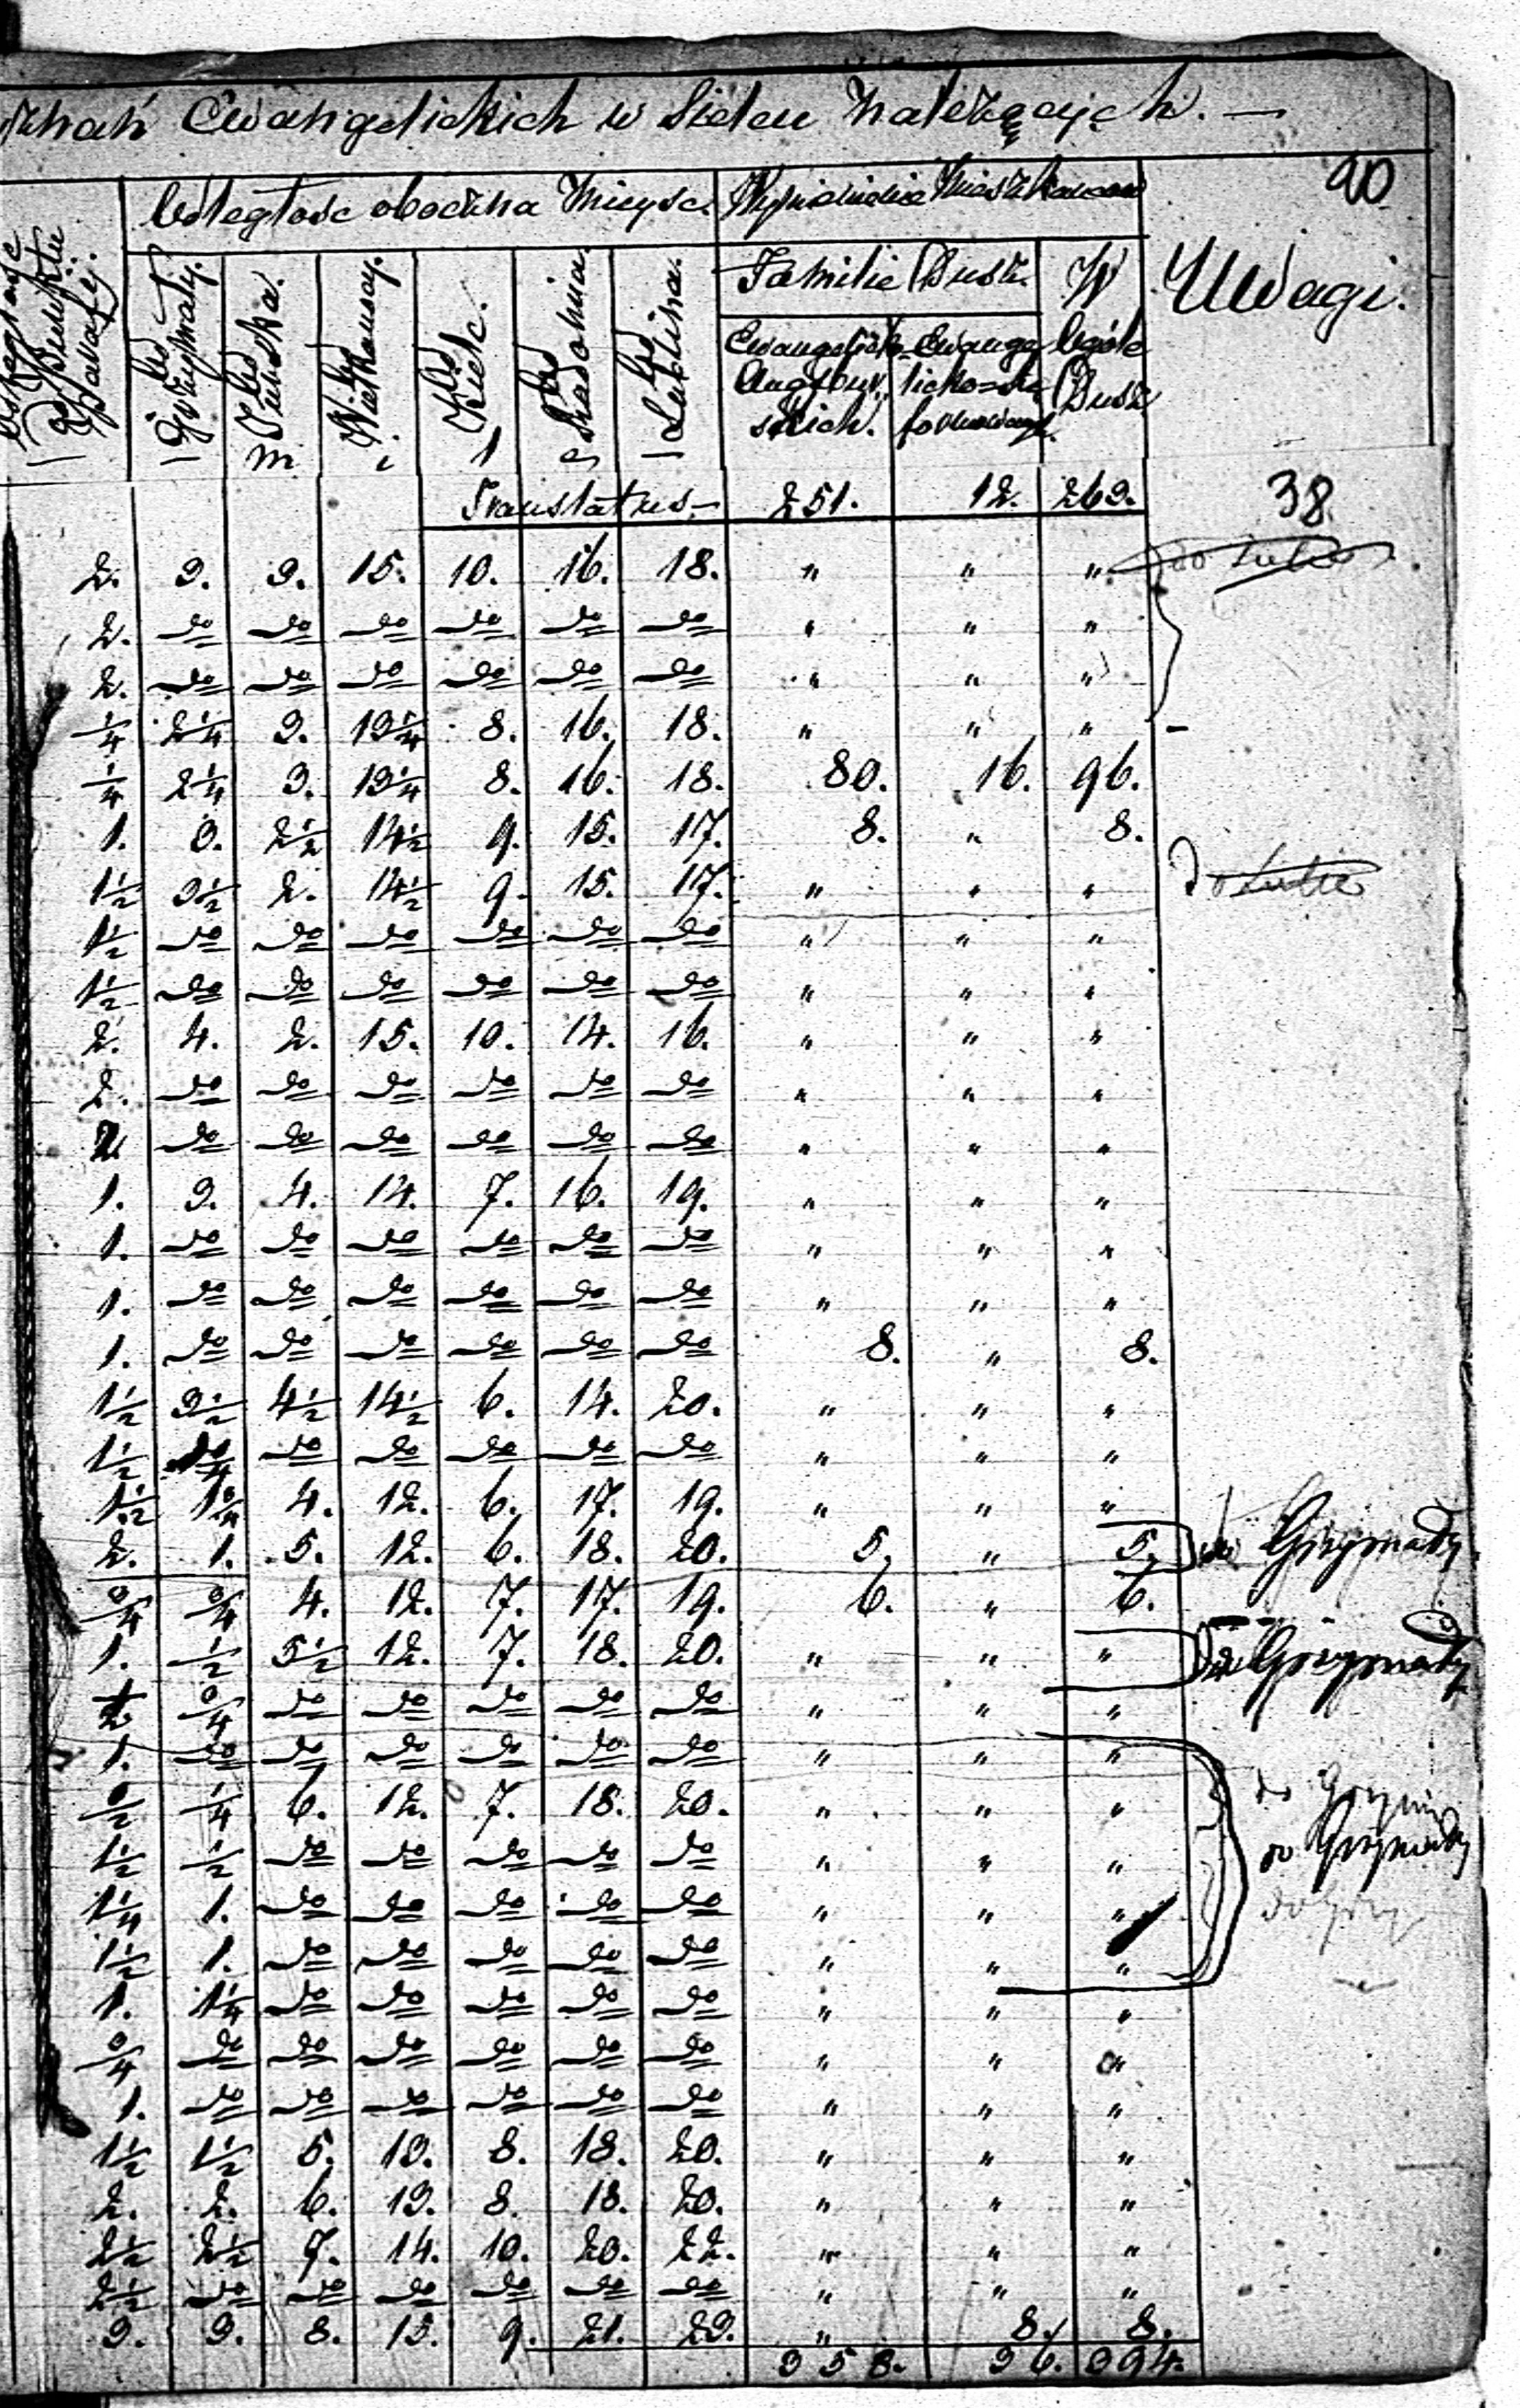 znań Ewangelickich w Sielcu należących. —
90
Odległość oboczna Mieysc.
Uwagi.
Familie Dusz. W
Od Grzymały.
Od Pińska.
Od Kielc.
Od Radomia.
Od Lublina.
Ewangelicko Ewange ogóle
Augsbur. licko=Re Dusz
skich. formowanych.
m i l
Translatus — 251. 12. 263. 38
2. 3. 3. 15. 10. 16. 18. " " "
2. do do do do do do " " "
2. do do do do do do " " "
1/4 2 1/4 3. 13 1/4 8. 16. 18. " " " –
1/4 2 1/4 3. 13 1/4 8. 16. 18. 80. 16. 96.
1. 3. 2 1/2 14 1/2 9. 15. 17. 8. " 8.
1 1/2 3 1/2 2. 14 1/2 9. 15. 17. " " "
1 1/2 do do do do do do " " "
1 1/2 do do do do do do " " "
2. 4. 2. 15. 10. 14. 16. " " "
2. do do do do do do " " "
2 do do do do do do " " "
1. 3. 4. 14. 7. 16. 19. " " "
1. do do do do do do " " "
1. do do do do do do " " "
1. do do do do do do 8. " 8.
1 1/2 3 1/2 4 1/2 14 1/2 6. 14. 20. " " "
1 1/2 do do do do do " " "
1 1/2 1 3/4 4. 12. 6. 17. 19. " " "
2. 1. 5. 12. 6. 18. 20. 5. " 5. do Grzymały
3/4 3/4 4. 12. 7. 17. 19. 6. " 6.
1. 1/2 5 1/2 12. 7. 18. 20. " " " do Grzymały
1/2 3/4 do do do do do " " "
1. do do do do do do " " "
3/2 1/4 6. 12. 7. 18. 20. " " " do Grzym
1 1/2 1/2 do do do do do " " " do Grzymały
1 1/4 1. do do do do do " " " do Grzy
1 1/2 1. do do do do do " " "
1. 1 1/4 do do do do do " " "
3/4 do do do do do do " " "
1. do do do do do do " " "
1 1/2 1 1/2 5. 13. 8. 18. 20. " " "
2. 2. 6. 13. 8. 18. 20. " " "
2 1/2 2 1/2 7. 14. 10. 20. 22. " " "
2 1/2 do do do do do do " " "
3. 3. 8. 13. 9. 21. 23. " 8. 8.
358. 36. 394.